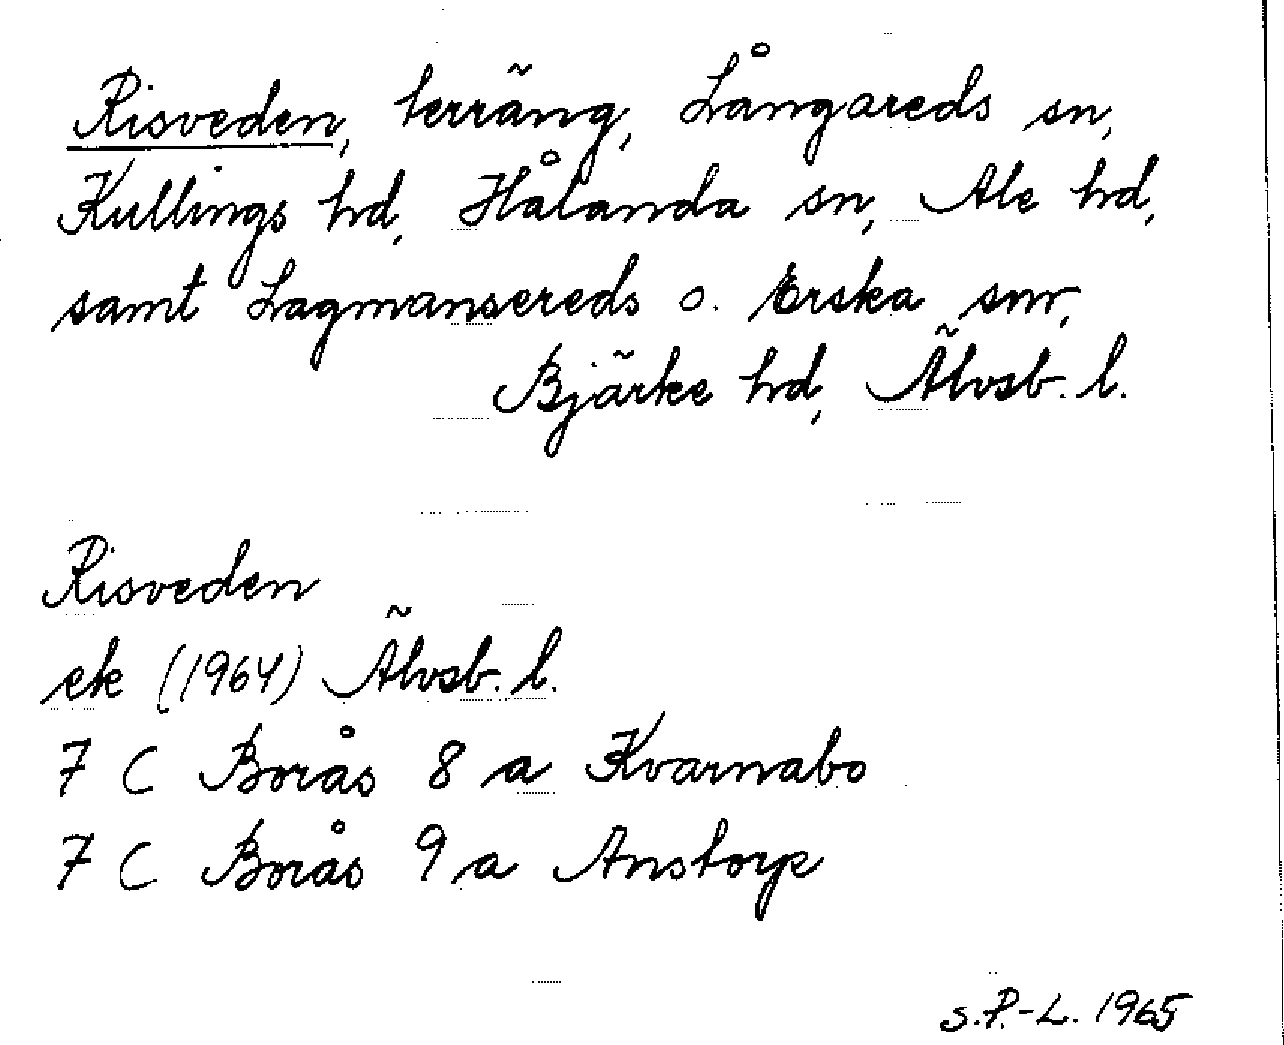 Risveden, terräng, Långareds sn,
Kullings hd, Hålanda sn, Ale hd,
samt Lagmansereds o. Erska snr,
Bjärke hd, Älvsb. l.
Risveden
ek (1964) Älvsb. l.
7 C Borås 8 a Kvarnabo
7 C Borås 9 a Anstorp
S.P.-L. 1965